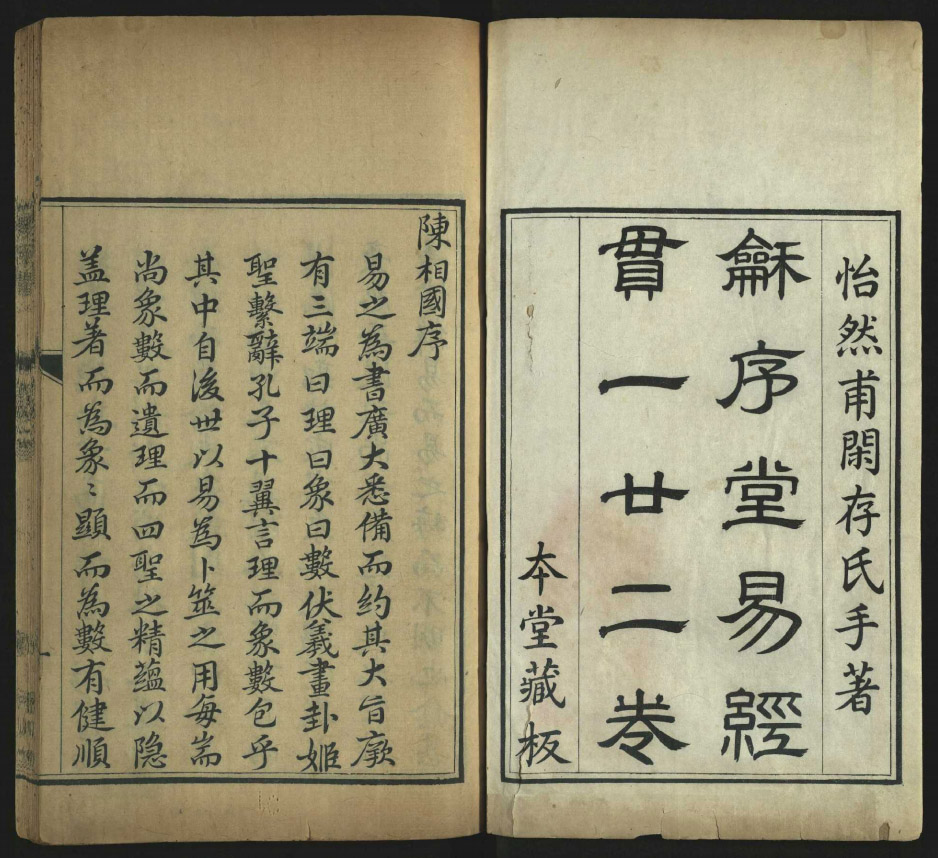 怡然甫閑存氏手著
龢序堂易經
貫一廿二卷
本堂藏板
陳相國序
易之為書廣大悉備而約其大旨厥
有三端曰理曰象曰數伏羲畫卦姬
聖繫辭孔子十翼言理而象數包乎
其中自後世以易為卜筮之用每耑
尚象數而遺理而四聖之精蘊以隐
盖理著而為象〻顯而為數有健順
一